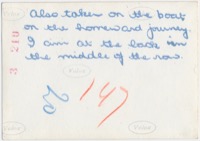 Also taken on the boat
on the homeward journey.
I am at the back in
the middle of the row.
3 218
20
147
Velox
Velox
Velox